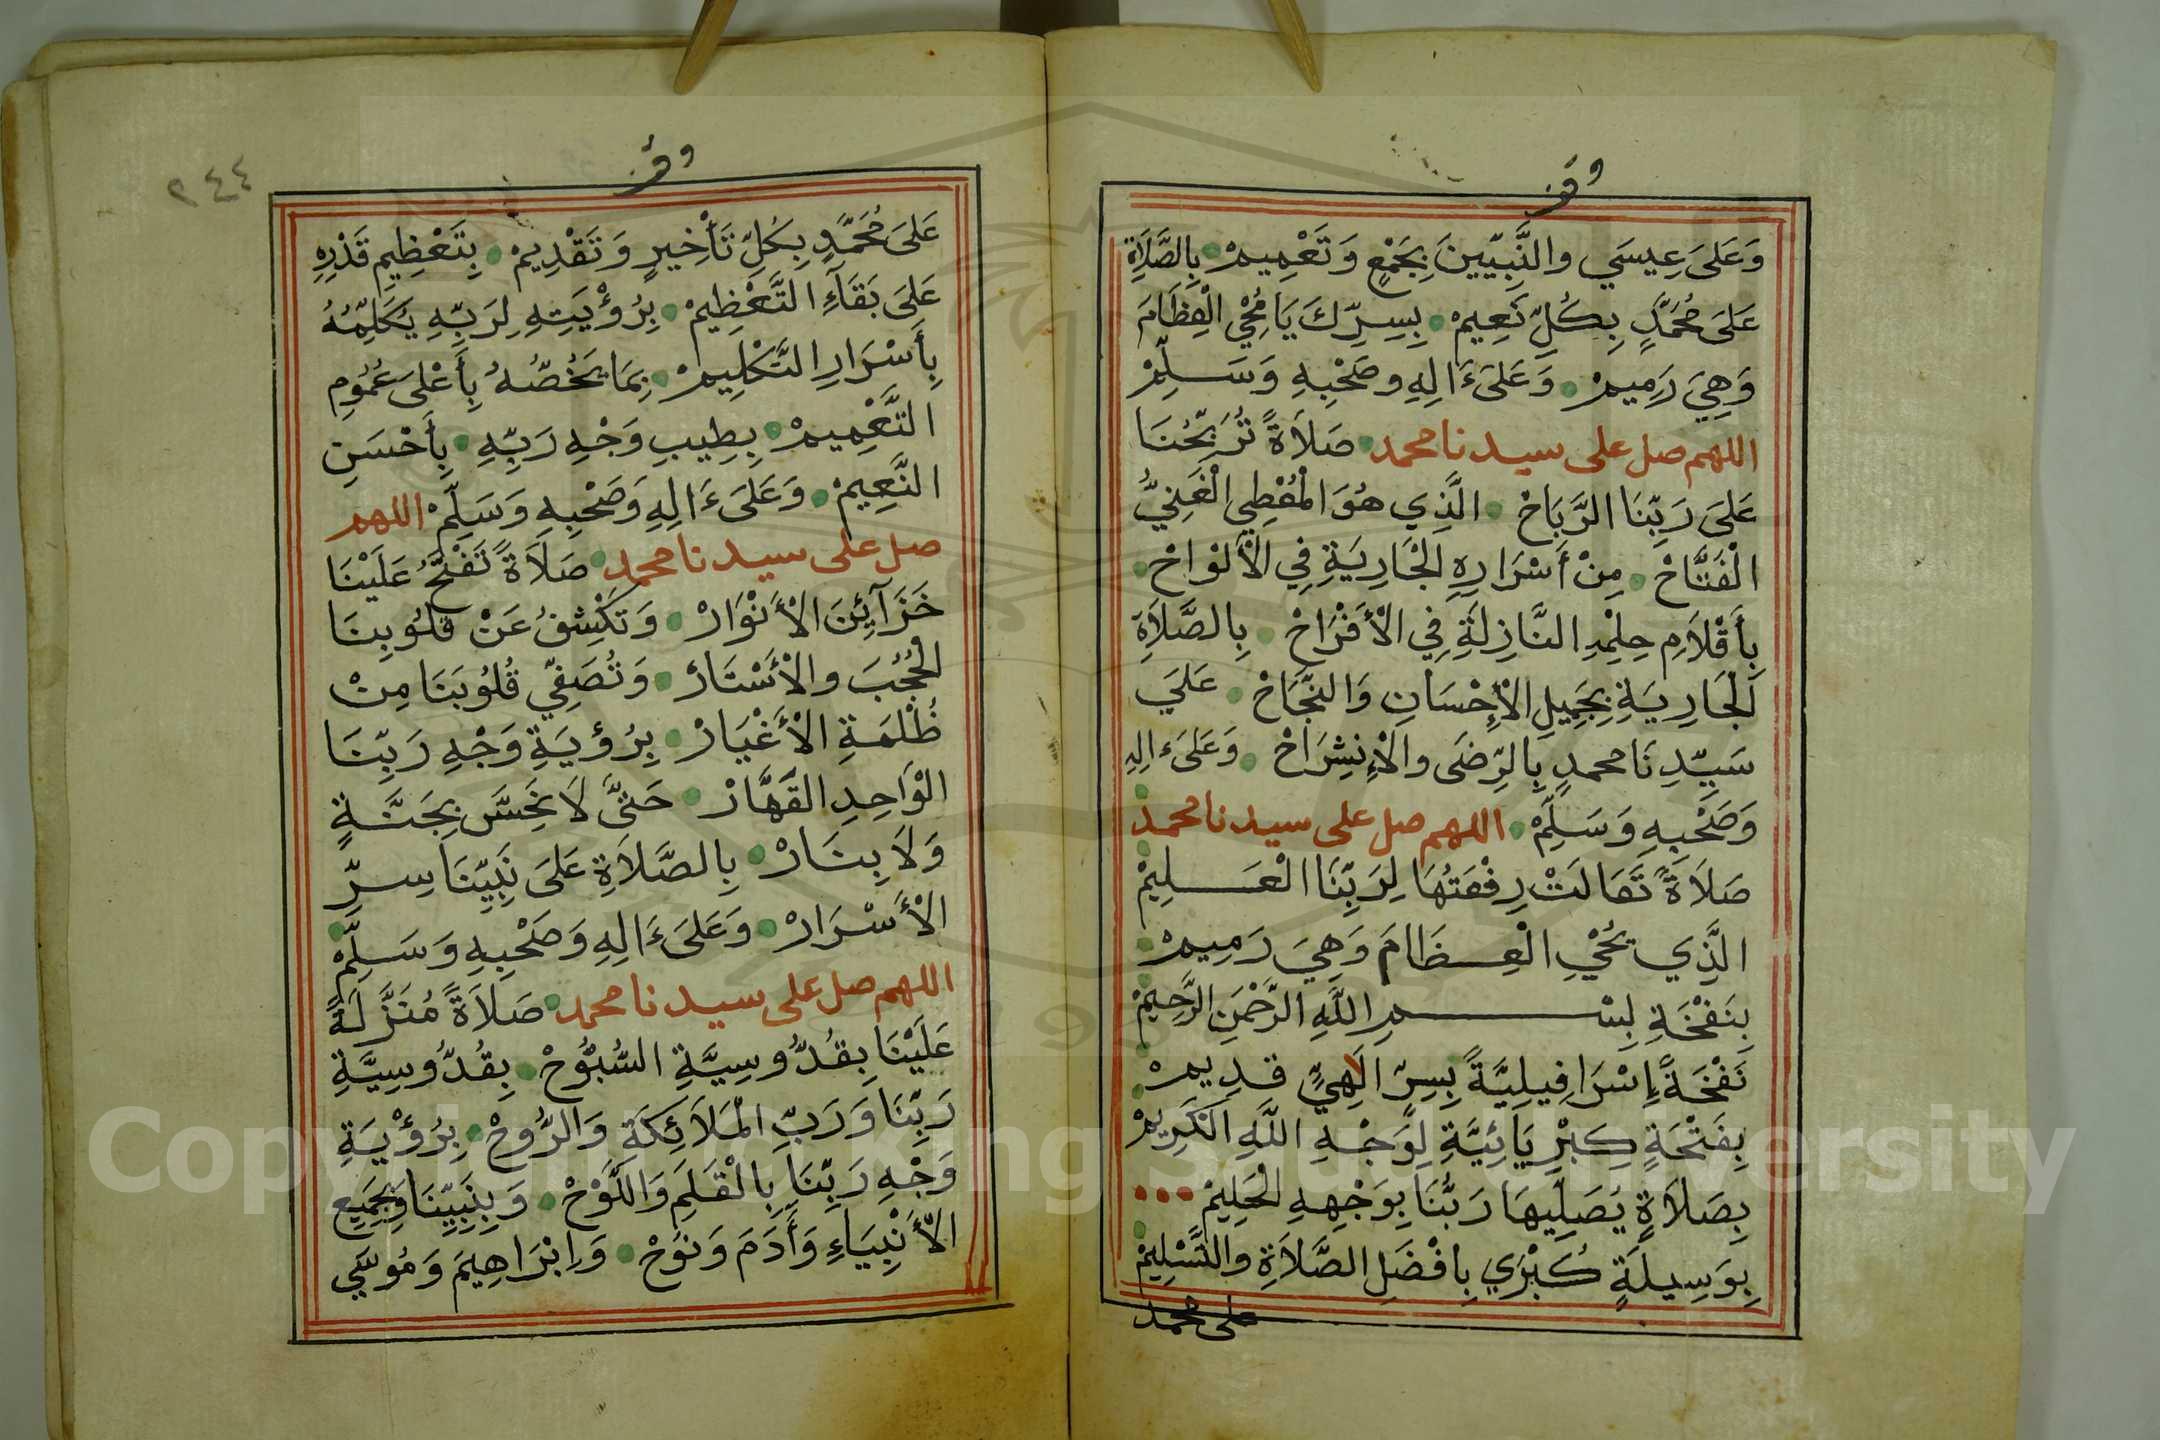 وقف
وَعَلَىَ عِيسَي والنَّبِيِّينَ بِجَمْعٍ وَتَعْمِيمْ بِالصَّلَاةِ
عَلَىَ مُحَمَّدٍ بِكُلِّ نَعِيمْ بِسِرِّكَ يَا مُحْيِ الْعِظَامَ
وَهِيَ رَمِيمْ وَعَلَىَ ءَالِهِ وصَحْبِهِ وَسَلِّمْ
اللهم صل على سيدنا محمد صَلاَةً تُرَبِّحُنَا
عَلَىَ رَبِّنَا الرَّبَاحْ الَّذِي هُوَ الْمُعْطِي الْغَنِيُّ
الْفَتَّاحْ مِنْ أَسْرَارِهِ الْجَارِيَةِ فِي الْأَلْوَاحْ
بِأَقْلاَمِ حِلْمِهِ النَّازِلَةِ فِي الْأَفْرَاحْ بِالصَّلاَةِ
الْجَارِيَةِ بِجَمِيلِ الْإِحْسَانِ وَالنَّجَاحْ عَلَيَ
سَيِّدِنَا محمدٍ بِالرِّضَى والْإِنشِرَاحْ وَعَلَىَ ءَالِهِ
وَصَحْبِهِ وَسَلِّمْ اللهم صل على سيدنا محمد
صَلاَةً تَعَالَتْ رِفْعَتُهَا لِرَبِّنَا الْعَلِيمْ
الَّذِي يُحْيِ الْعِظَامَ وَهِيَ رَمِيمْ
بِنَفْخَةِ بِسْمِ اللَّهِ الرَّحْمَنِ الرَّحِيمْ
نَفْخَةً إِسْرَافِيلِيَّةً بِسِرِّ الَهِيٍّ قَدِيمْ
بِفَتْحَةٍ كِبْرِيَائِيَّةٍ لِوَجْهِ اللَّهِ الْكَرِيمْ
بِصَلاَةٍ يُصَلِّيهَا رَبُّنَا بِوَجْهِهِ الْحَلِيمْ
بِوَسِيلَةٍ كُبْرَي بِافْضَلِ الصَّلاَةِ والتَّسْلِيمْ
على محمد
وقف
٢٤٤
عَلَىَ مُحَمَّدٍ بِكُلِّ تَأْخِيرٍ وَتَقْدِيمْ بِتَعْظِيمِ قَدْرِهِ
عَلَىَ بَقَآءِ التَّعْظِيمْ بِرُؤْيَتِهِ لِرَبِّهِ يُكَلِّمُهُ
بِأَسْرَارِ التَّكْلِيمْ بِمَا يَخُصُّهُ بِأَعْلَىَ عُمُومِ
التَّعْمِيمْ بِطِيبِ وَجْهِ رَبِّهِ بِأَحْسَنِ
النَّعِيمْ وَعَلَىَ ءَالِهِ وَصَحْبِهِ وَسَلِّمْ اللهم
صل على سيدنا محمد صَلاَةً تَفْتَحُ عَلَيْنَا
خَزَآئِنَ الْأَنْوَارْ وَتَكْشِفُ عَنْ قلُوبِنَا
الْحُجُبَ والْأَسْتَارْ وَتُصَفِّي قُلُوبَنَا مِنْ
ظُلْمَةِ الْأَغْيَارْ بِرُؤيَةِ وَجْهِ رَبِّنَا
الْوَاحِدِ الْقَهَّارْ حَتَّىَ لاَ نَحِسَّ بِجَنَّةٍ
وَلاَ بِنَارْ بِالصَّلاَةِ عَلَىَ نَبِيِّنَا سِرِّ
الْأَسْرَارْ وَعَلَىَ ءَالِهِ وَصَحْبِهِ وَسَلِّمْ
اللهم صل على سيدنا محمد صَلاَةً مُنَزَّلَةً
عَلَيْنَا بِقُدُّوسِيَّةِ السُّبُّوحْ بِقُدُّوسِيَّةِ
رَبِّنَا وَرَبِّ الْمَلاَئِكَةِ وَالرُّوحْ بِرُؤْيَةِ
وَجْهِ رَبِّنَا بِالْقَلَمِ وَاللَّوْحْ وَبِنَبِيِّنَا وَبِجَمِيعِ
الْأَنْبِيَاءِ وَأَدَمَ وَنُوحْ وَإِبْرَاهِيمَ وَمُوسَي
Copyright © King Saud University